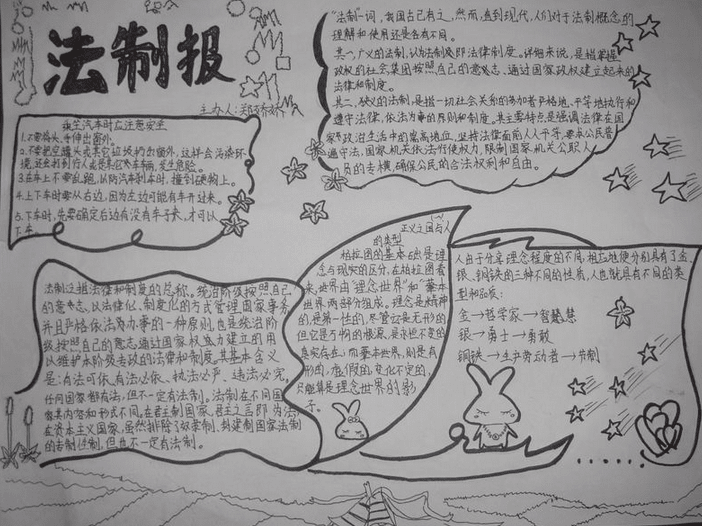 法制报
主办人:郑娇娇
乘坐汽车时应注意安全
1.不要将头、手伸出窗外。
2.不要把空罐头或其它垃圾扔出窗外,这样会污染环
境,还会打到行人或是其它汽车车辆,发生危险。
3.在车上不要乱跑,以防汽车刹车时,撞到硬物上。
4.上下车时要从右边,因为左边可能有车开过来。
5.下车时,先要确定后边有没有车子来,才可以
下车。
“法制”一词,我国古已有之,然而,直到现代,人们对于法制概念的
理解和使用还是各有不同。
其一,广义的法制,认为法制即法律制度。详细来说,是指掌握
政权的社会集团按照自己的意志,通过国家政权建立起来的
法律和制度。
其二,狭义的法制,是指一切社会关系的参加者严格地、平等地执行和
遵守法律,依法办事的原则和制度。其主要特点是强调法律在国
家政治生活中的崇高地位,坚持法律面前人人平等,要求公民普
遍守法,国家机关依法行使权力,限制国家机关公职人
员的专横,确保公民的合法权利和自由。
法制这指法律和制度的总称。统治阶级按照自己
的意志,以法律化、制度化的方式管理国家事务,
并且严格依法为办事的一种原则,也是统治阶
级按照自己的意志通过国家权力建立的用
以维护本阶级专政的法律和制度,其基本含义
是:有法可依、有法必依、执法必严、违法必究,
任何国家都有法,但不一定有法制。法制在不同国
家其内容和形式不同,在君主制国家,君主之言即为法,
在资本主义国家,虽然排除了奴隶制、封建制国家法制
的专制性制,但也不一定有法制。
正义之国与人
的类型
柏拉图的基本点是理
念与现实的区分,在柏拉图看
来,世界由“理念世界”和“基本
世界”两部分组成。理念是精神
的,是第一性的,尽管它是无形的,
但它是万物的根源,是永恒不变的
真实存在;而基本世界,则是有
形的,虚假的,变化不定的,
只能算是理念世界的影
子。
人由于分享理念程度的不同,相应地便分别具有了金、
银、铜铁的三种不同的性质,人也就具有不同的类
型和品质:
金→哲学家→智慧慧
银→勇士→勇敢
铜铁→生产劳动者→节制